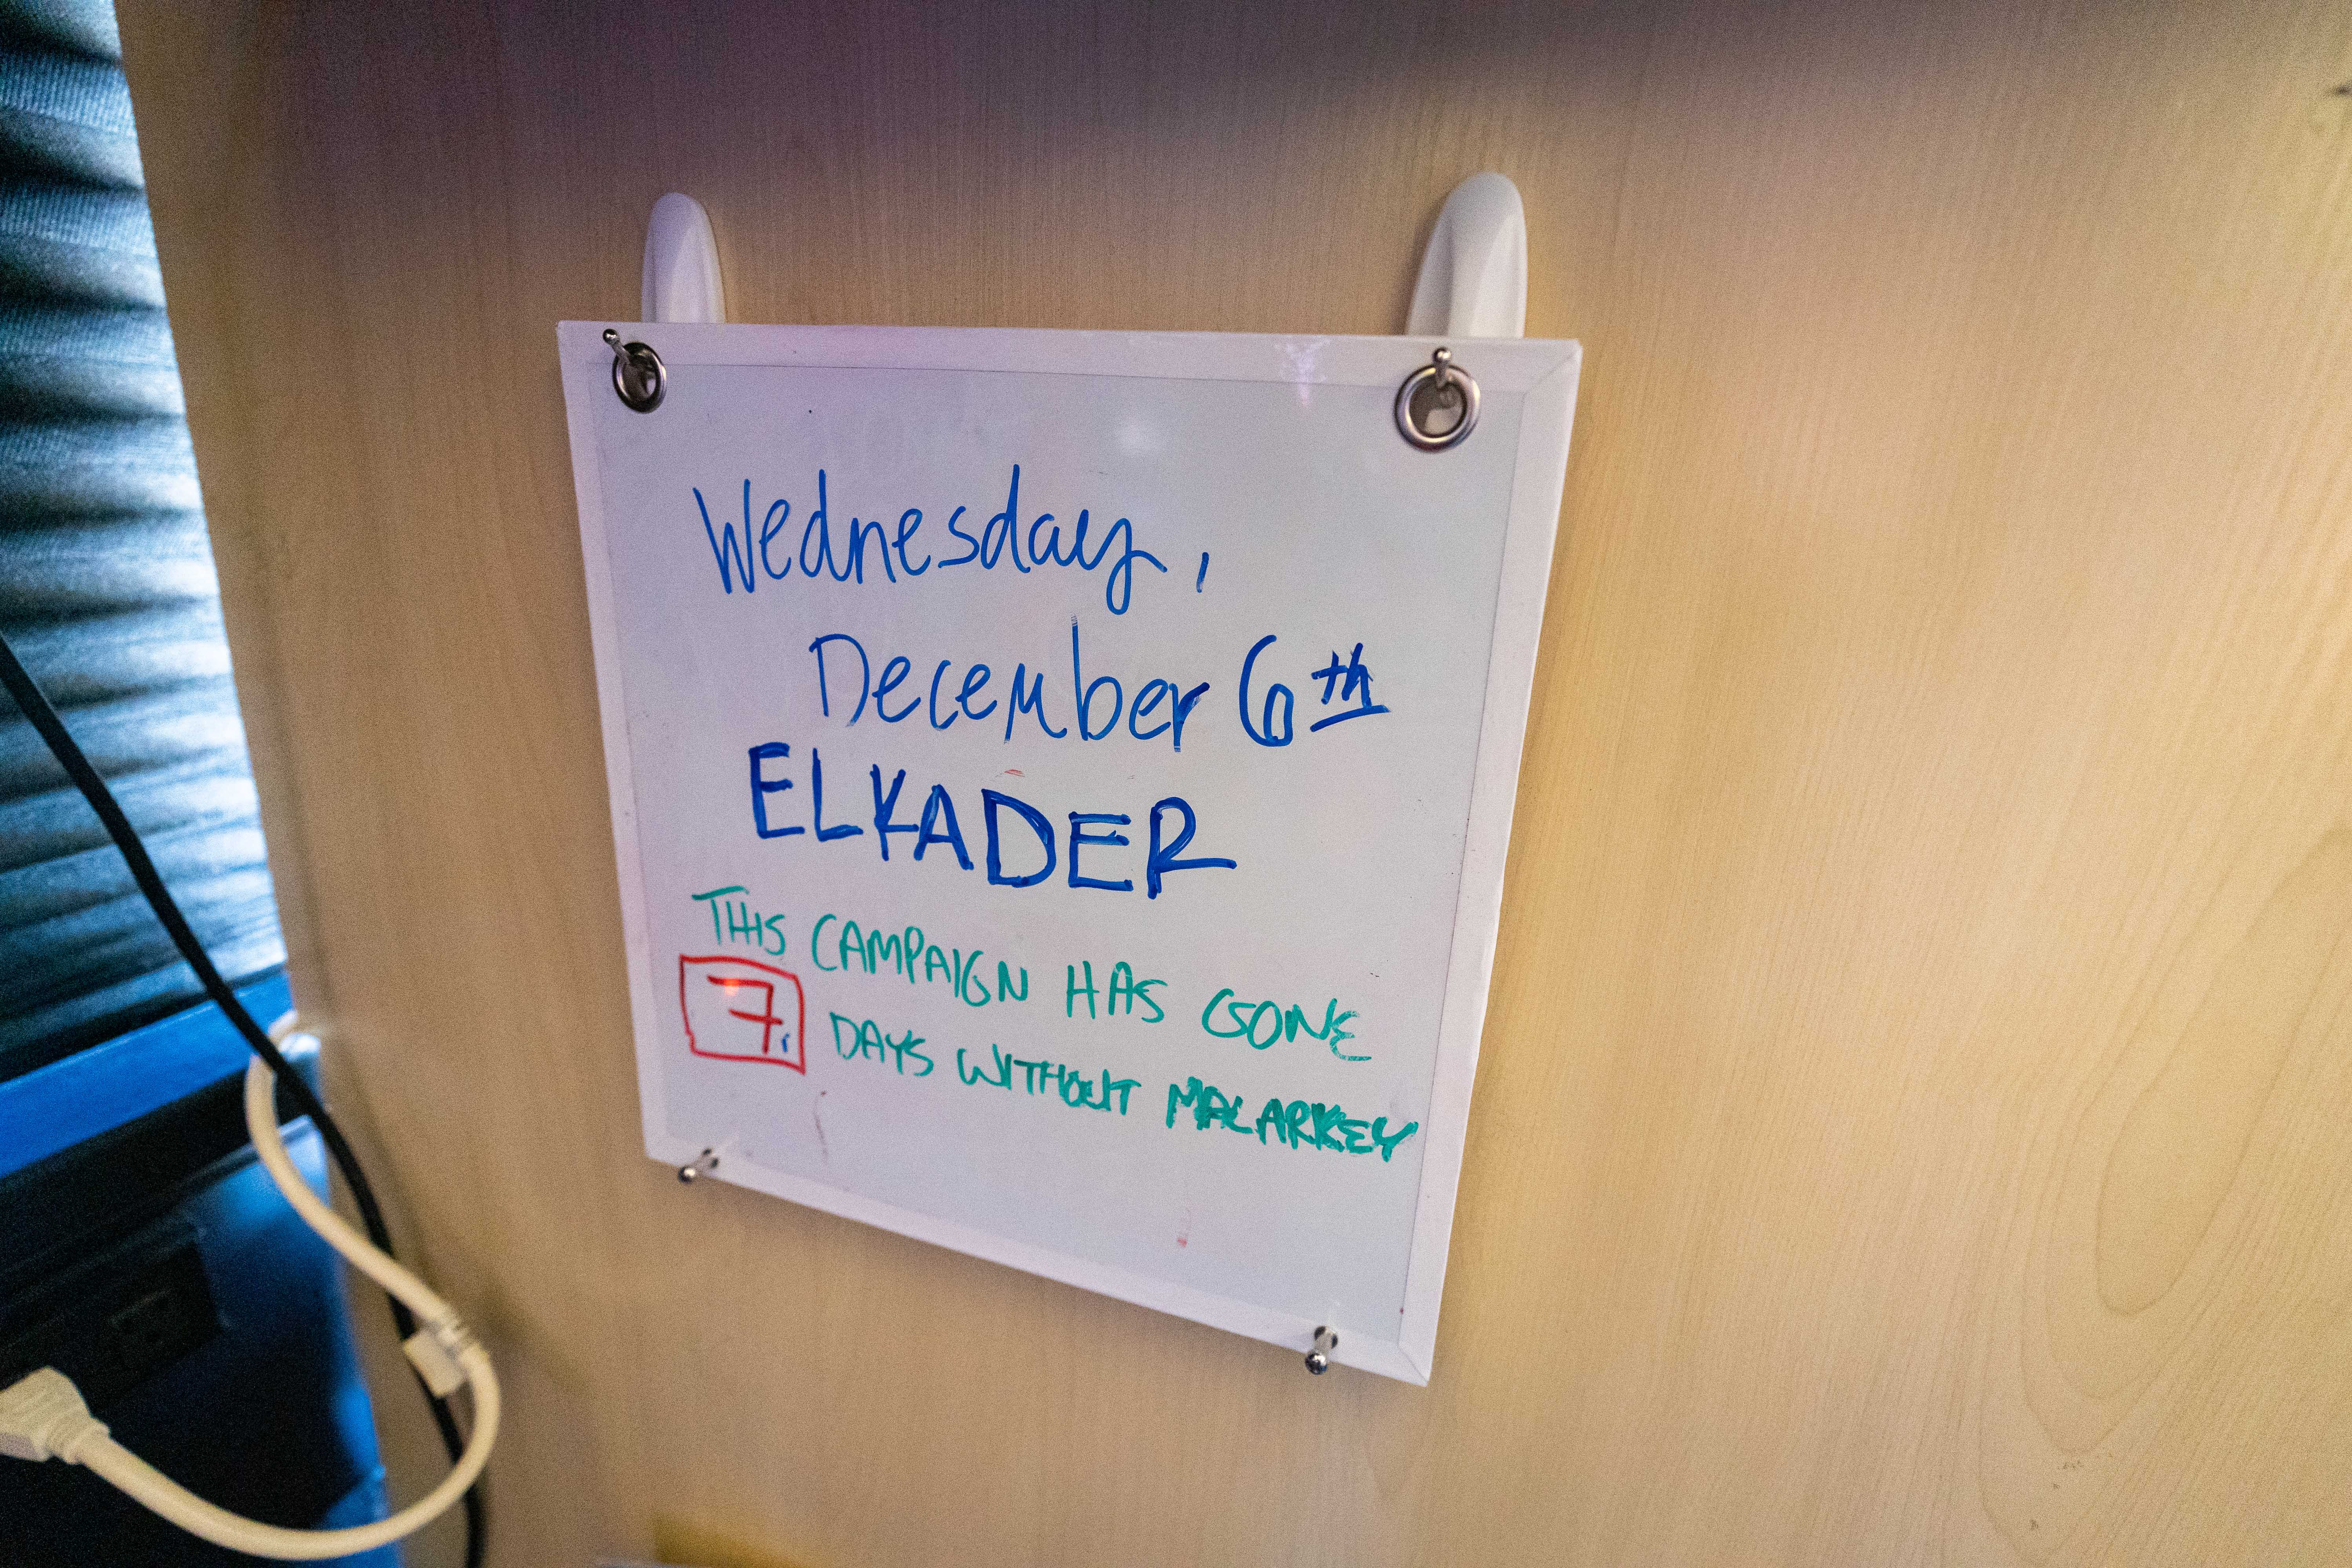 Wednesday,
December 6th
ELKADER
THIS CAMPAIGN HAS GONE
7 DAYS WITHOUT MALARKEY